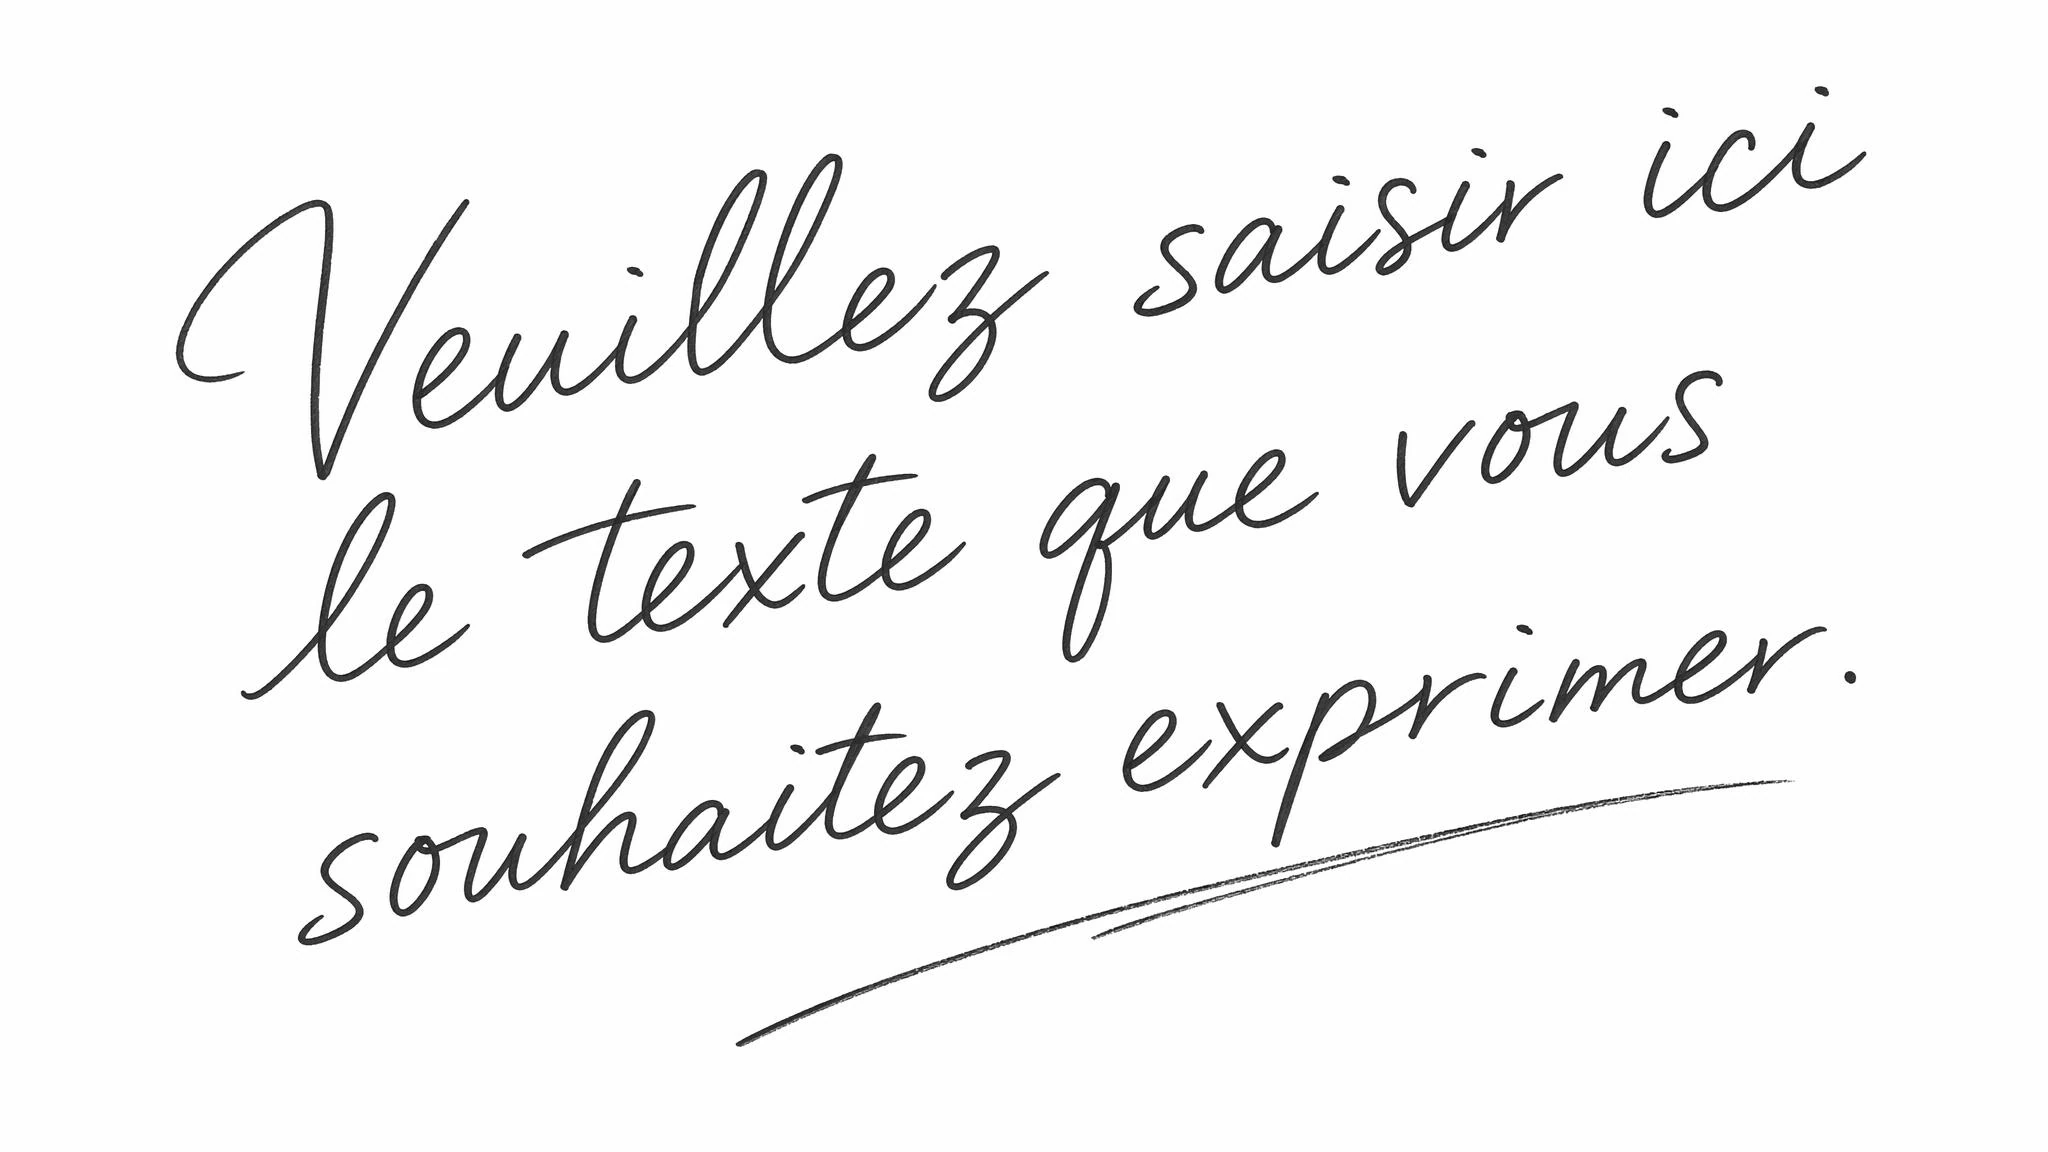 Veuillez saisir ici
le texte que vous
souhaitez exprimer.